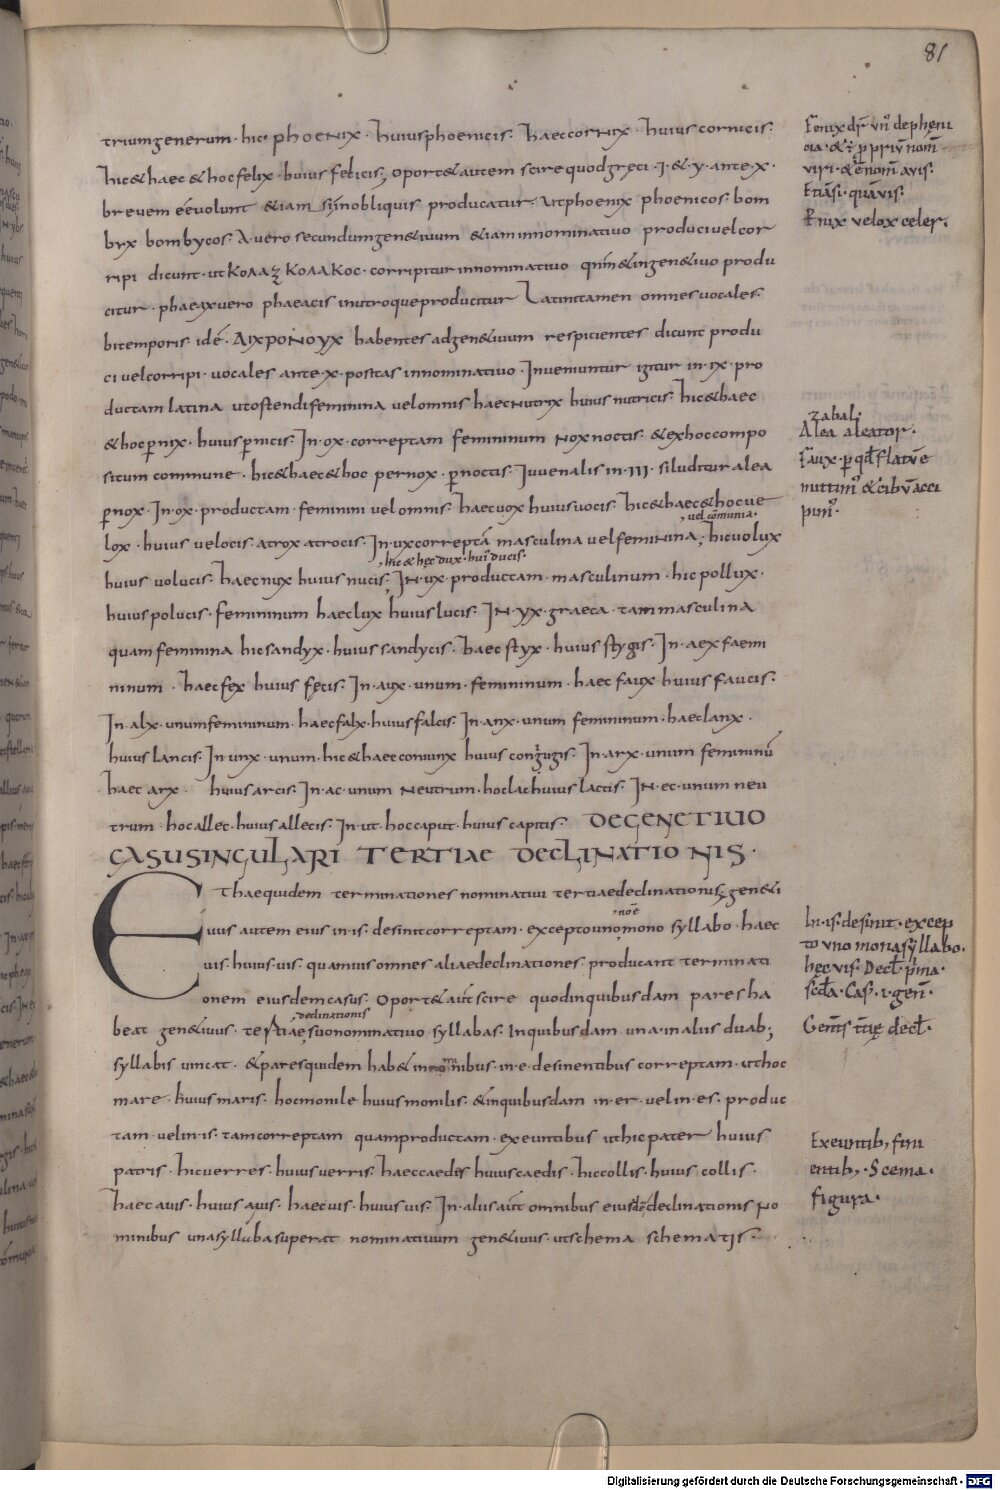 81
triumgenerum · hic · phoenix · huiusphoenicis · haeccornix · huius cornicis ·
hic&haec&hocfelix · huius felicis; oport&autem scire quodgręci · i · & · y · ante · x ·
brevem eẽvolunt &iam sy inobliquis producatur · Utphoenix phoenicos · bom
byx bombycos · A · vero secundumgen&ivum &iaminnominativo producivelcor
ripi dicunt · ut κολαξ κολακος · corripiturinnominativo qm̃&ingen&iuo produ
citur · phaeaxvero phaeacis inutroqueproducitur Latinitamen omnesvocales ·
bitemporis · idẽ · ΔιχροΝογχ habentes adgen&ivum respicientes dicunt produ
ci velcorripi · vocales ante · x · positas innominativo · Inveniuntur igitur in · ix · pro
ductam latina utostendifeminina velomnis haecNutrix huius nutricis · hic&haec
&hocp̲nix · huiusp̲nicis · In · ox · correptam femininum Nox noctis · &exhoccompo
situm commune · hic&haec&hoc pernox · p̲noctis · Iuvenalis in · III · siludituralea
p̲nox · In · ox · productam · feminini velomnis · haecvox huiusvocis · hic&haec&hocve
lox · huius velocis · atrox atrocis · In · uxcorreptã masculina velfeminina, hicvolux
, vel cõmunia ·
huius volucis · haecnux huius nucis, IN · ux · productam · masculinum · hic pollux ·
, hic & hęc dux · hui᾽ ducis ·
huiuspolucis · femininum haeclux huius lucis · IN · yx · graeca · tam masculina
quam feminina hicsandyx · huius sandycis · haec styx · huius stygis · In · aex faemi
ninum · haecfex huius fęcis · In · aux · unum · femininum · haec faux huius faucis ·
In · alx · unumfemininum · haecfalx · huius falcis · In · anx · unum femininum · haeclanx ·
huius lancis · In · unx · unum · hic&haecconiunx huius coniugis · In · arx · unum femininũ
haec arx · huius arcis · In · ac · unum Neutrum · hoclachuius lactis · IN · ec · unum neu
trum hocallec · huius allecis · In · ut · hoccaput · huius capitis · DEGENETIUO
CASUSINGULARI TERTIAE DECLINATIONIS ·
Ethaequidem terminationes nominativi tertiaedeclinationis; gen&i
ivus autem eius in · is · desinitcorreptam · exceptouno, mono syllabo · haec
, noẽ
vis · huius · vis · quamuisomnes aliaedeclinationes · producant terminati
onem eiusdemcasus · Oport&aũt scire quodinquibusdam pares ha
beat gen&ivus · tertiae, suonominativo syllabas · Inquibusdam una · inaliis duab;
, declinationis
syllabis vincat · &paresquidem hab&in nominibus · in · e · desinentibus correptam · uthoc
mare · huius maris · hocmonile huius monilis · &inquibusdam in · er · vel in · es · produc
tam · velin · is · tamcorreptam quamproductam · exeuntibus uthicpater huius
patris · hicverres · huius verris · haeccaedes huiuscaedis · hiccollis · huius collis ·
haecavis · huius avis · haecvis · huius vis · In · aliisaũt omnibus eiusdẽdeclinationis no
minibus unasyllabasuperat nominativum gen&ivus · utschema schematis ·
viri · & ẽ nom̃ avis ·
Etiãsi · quãvis ·
Pnix velox celer ·
zabal ·
Alea aleator ·
Faux · p̲ qđ flatũe
mittim᾽ & cibũ acci
pim᾽ ·
In · is · desinit · excep
to uno monasyllabo ·
hęc vis · Decl̃ p̃ma ·
Exeuntib; fini
entib; · Scema ·
figura ·
Digitalisierung gefördert durch die Deutsche Forschungsgemeinschaft - DFG